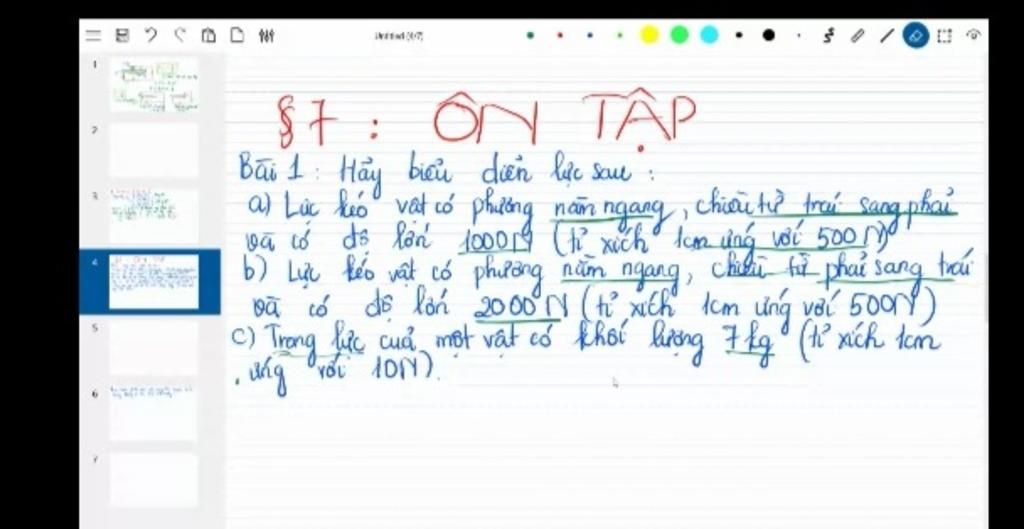 Untitled (4/7)
§7: ÔN TẬP
Bài 1: Hãy biểu diễn lực sau:
a) Lực kéo vật có phương nằm ngang, chiều từ trái sang phải
và có độ lớn 1000N (tỉ xích 1cm ứng với 500N)
b) Lực kéo vật có phương nằm ngang, chiều từ phải sang trái
và có độ lớn 2000N (tỉ xích 1cm ứng với 500N)
c) Trọng lực của một vật có khối lượng 7kg (tỉ xích 1cm
ứng với 10N).
1
2
3
4
5
6
7